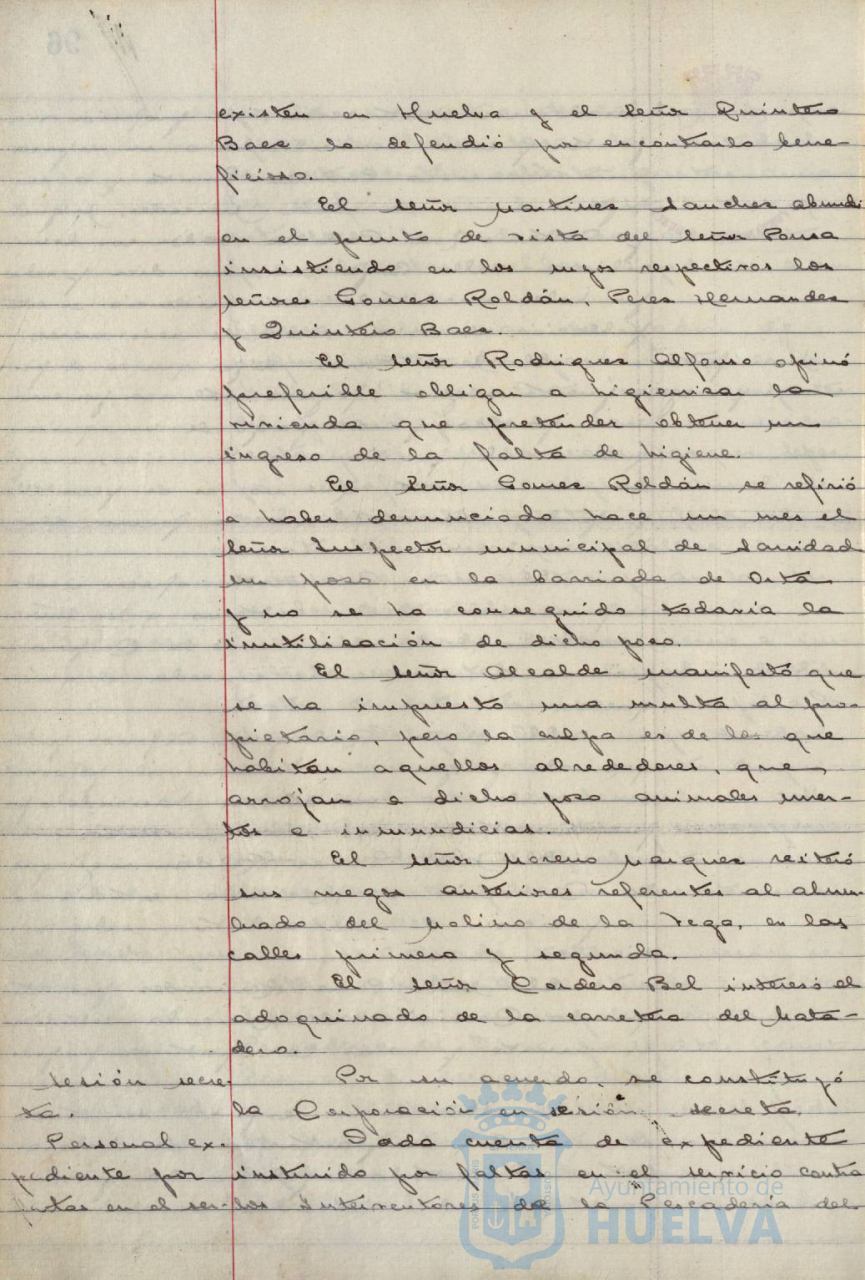 existen en Huelva y el señor Quintero
Baez lo defendió por encontrarlo bene-
ficioso.
El señor Martinez Sanchez abundó
en el punto de vista del señor Ponza
insistiendo en los suyos respectivos los
señores Gomez Roldán, Perez Hernandez
y Quintero Baez.
El señor Rodriguez Alfonso opinó
preferible obligar a higienizar la
vivienda que pretender obtener un
ingreso de la falta de higiene.
El Señor Gomez Roldán se refirió
a haber denunciado hace un mes el
señor Inspector municipal de Sanidad
un pozo en la barriada de Orta
y no se ha conseguido todavía la
inutilización de dicho pozo.
El señor Alcalde manifestó que
se ha impuesto una multa al pro-
pietario, pero la culpa es de los que
habitan aquellos alrededores, que
arrojan a dicho pozo animales muer-
tos e inmundicias.
El señor Moreno Marquez reiteró
sus ruegos anteriores referentes al alum-
brado del Molino de la Vega, en las
calles primera y segunda.
El señor Cordero Bel interesó el
adoquinado de la carretera del Mata-
dero.
Sesión secre-
ta.
Por su acuerdo, se constituyó
la Corporación en sesión secreta.
Personal ex-
pediente por
faltas en el ser-
Dada cuenta de expediente
instruido por faltas en el servicio contra
los Interventores de la Pescadería del
96
Ayuntamiento de
HUELVA